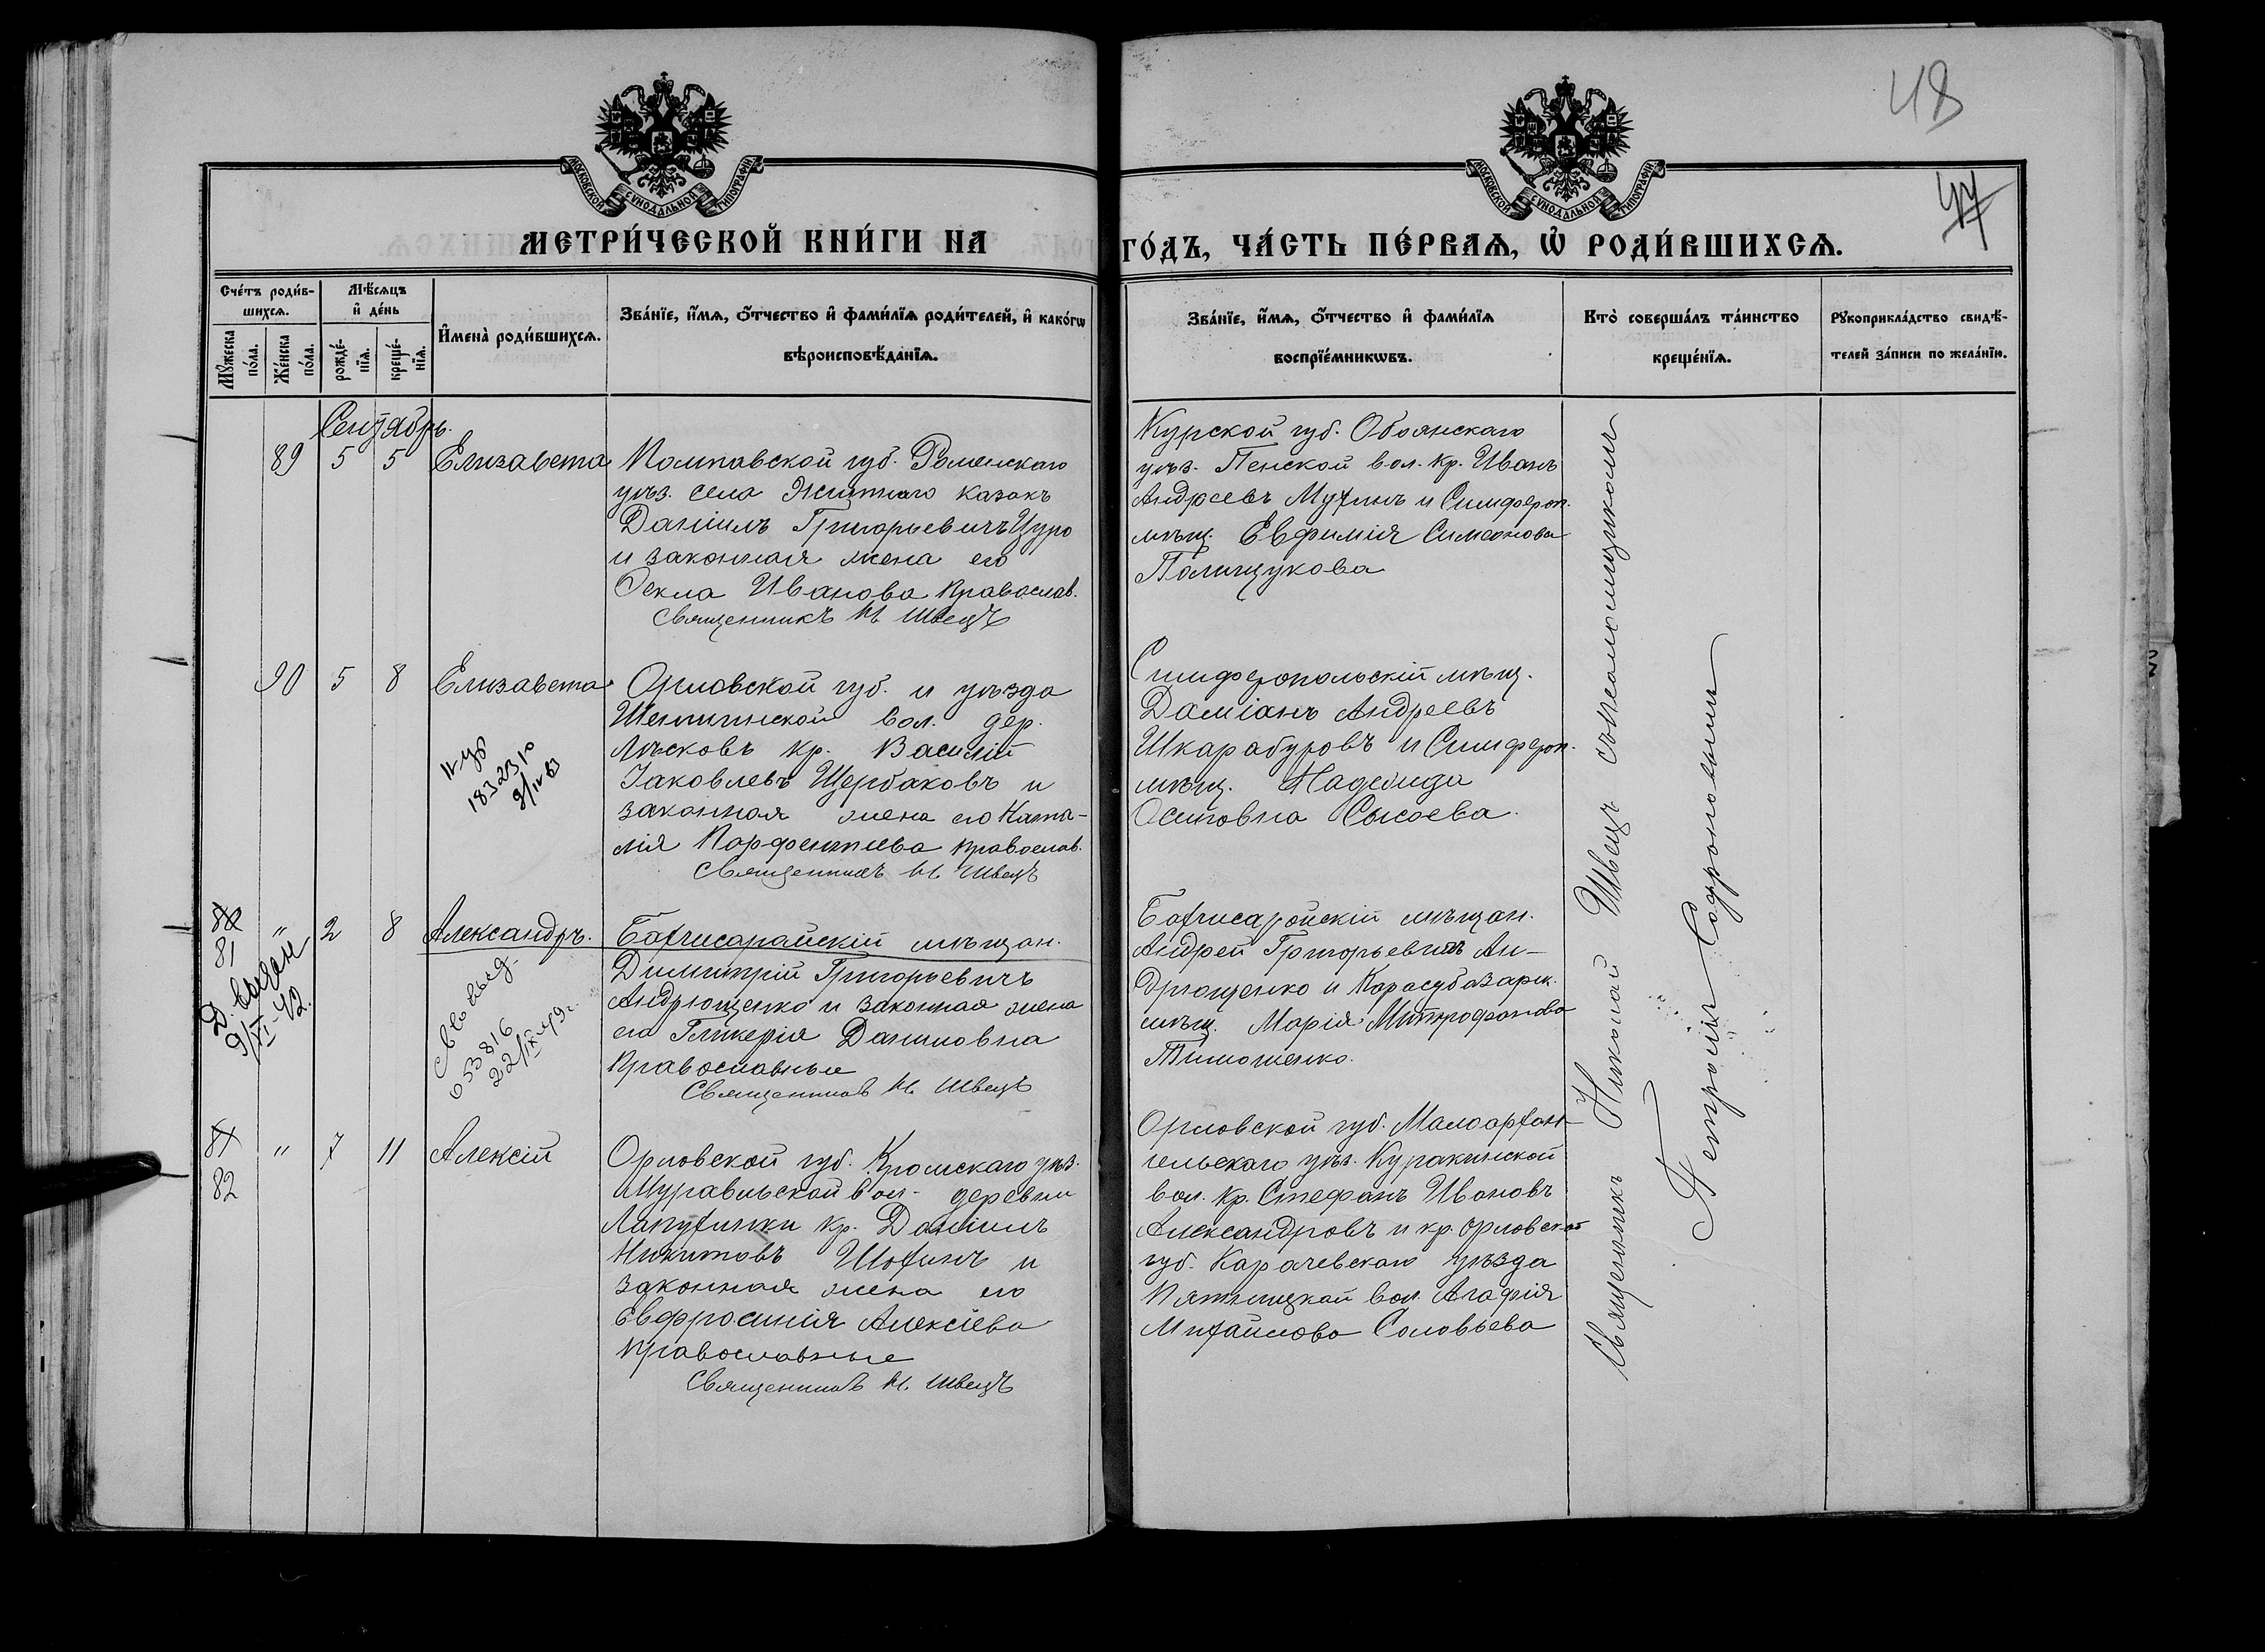 48
47
МОСКОВСКОЙ СѴНОДАЛЬНОЙ ТИПОГРАФІИ
МОСКОВСКОЙ СѴНОДАЛЬНОЙ ТИПОГРАФІИ
МЕТРИ́ЧЕСКОЙ КНИ́ГИ НА
ГО́ДЪ, ЧА́СТЬ ПЕ́РВАѦ, Ѡ҆ РОДИ́ВШИХСѦ.
Сче́тъ роди́в-
шихсѧ.
Мꙋ́жеска по́ла.
Же́нска по́ла.
Мѣ́сѧцъ
и҆ де́нь
рожде́-
нїѧ.
креще́-
нїѧ.
И҆мена̀ роди́вшихсѧ.
Зва́нїе, и҆́мѧ, ѻ҆́тчество и҆ фами́лїѧ роди́телей, и҆ како́гѡ
вѣроисповѣ́данїѧ.
Зва́нїе, и҆́мѧ, ѻ҆́тчество и҆ фами́лїѧ
воспрїе́мникѡвъ.
Кто̀ соверша́лъ та́инство
креще́нїѧ.
Рꙋкоприкла́дство свидѣ́-
телей за́писи по жела́нїю.
Сентябрь.
89 5 5 Елизавета
Полтавской губ. Роменскаго
уѣз. села Житнаго казакъ
Даніилъ Григорьевичъ Цуро
и законная жена его
Ѳекла Иванова Православ.
Священникъ Н. Швецъ
Курской губ. Обоянскаго
уѣз. Пенской вол. кр. Иванъ
Андреевъ Мухинъ и Симфероп.
мѣщ. Евфимія Симеонова
Полищукова
90 5 8 Елизавета
Орловской губ. и уѣзда
вол. дер.
Лѣсковъ кр. Василій
Іаковлевъ Щербаковъ и
законная жена его Ната-
лія Парфентиева православ.
Священникъ Н. Швецъ
18323
Симферопольскій мѣщ.
Даміанъ Андреевъ
Шкарабуровъ и Симфероп.
мѣщ. Надежда
Осиповна Сысоева.
82
81 " 2 8 Александръ.
Д. выдан
9/VI-42.
053816
22/IX 49 г.
Бахчисарайскій мѣщан.
Димитрій Григорьевичъ
Андрющенко и законная жена
его Гликерія Даниловна
Православные
Священникъ Н. Швецъ
Бахчисарайскій мѣщан.
Андрей Григорьевичъ Ан-
дрющенко и Карасубазарск.
мѣщ. Марія Митрофанова
Тимошенко.
81
82 " 7 11 Алексій
Орловской губ. Кромскаго уѣз.
Муравльской вол. деревни
Лапухинки кр. Даніилъ
Никитовъ Шохинъ и
законная жена его
Евфросинія Алексіева
православные
Священникъ Н. Швецъ
Орловской губ. Малоархан-
гельскаго уѣз. Куракинской
вол. кр. Стефанъ Ивановъ
Александровъ и кр. Орловской
губ. Карачевскаго уѣзда
Пятницкой вол. Агафія
Михайлова Соловьева
Священникъ Николай Швецъ съ псаломщикомъ
Петромъ Софроновымъ